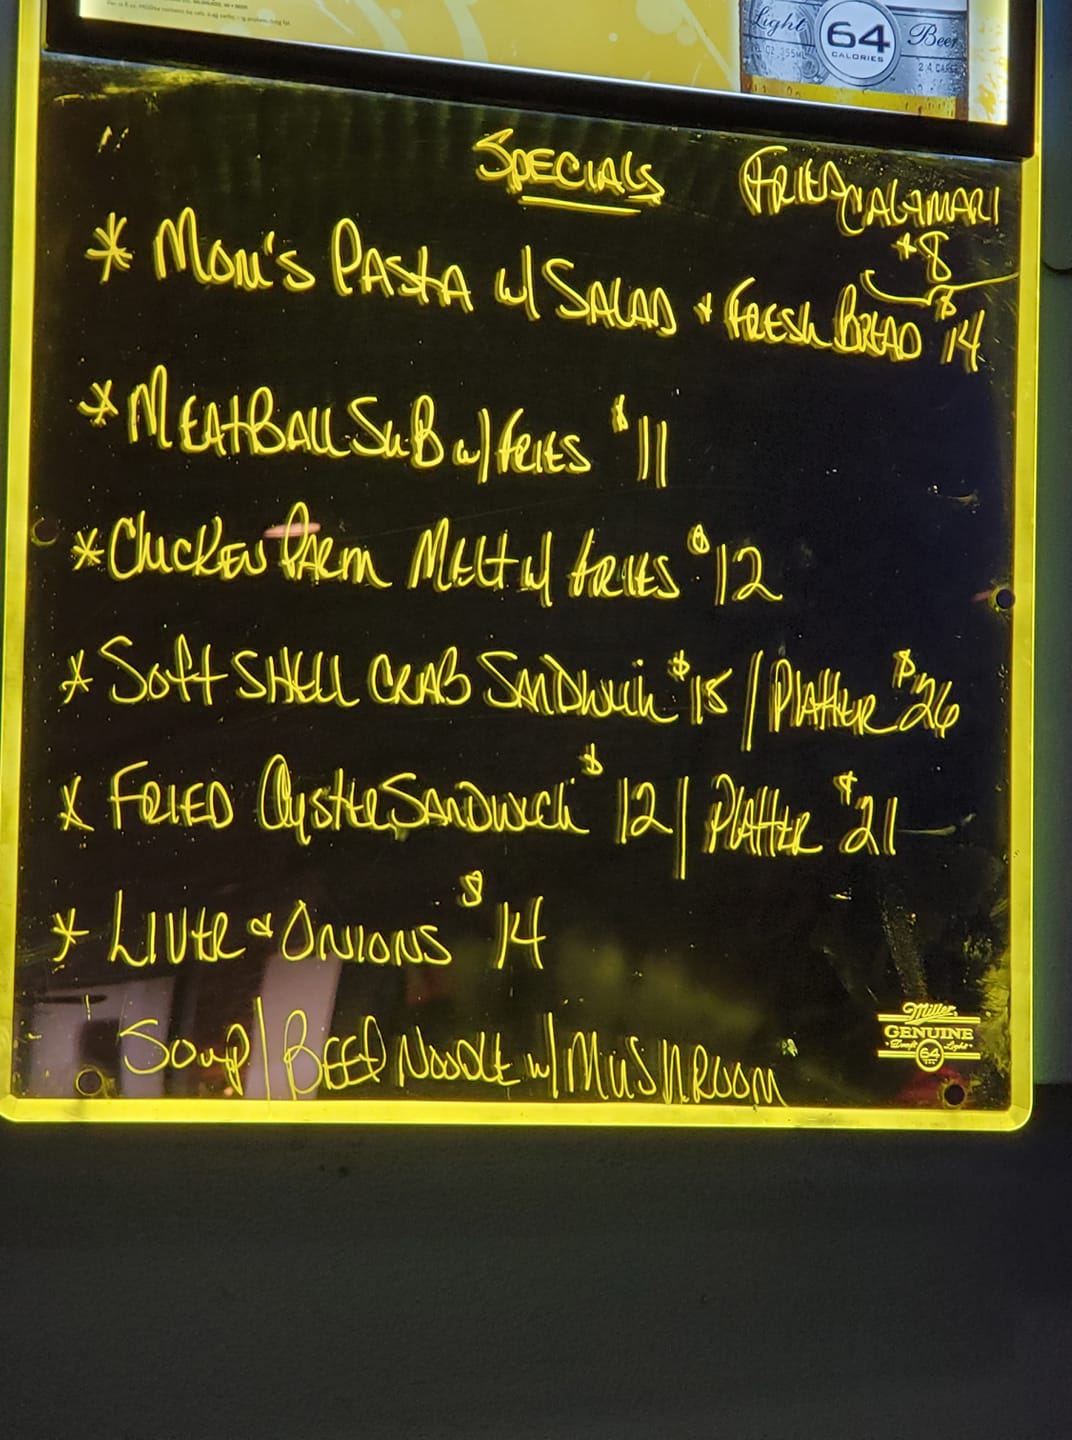 Light
64
CALORIES
Beer
SPECIALS
FRIED CALAMARI
*8
* MOM'S PASTA w/ SALAD + FRESH BREAD $14
* MEATBALL SUB w/ FRIES $11
* CHICKEN PARM MELT w/ FRIES $12
* SOFT SHELL CRAB SANDWICH $15 / PLATTER $26
* FRIED OYSTER SANDWICH $12 / PLATTER $21
* LIVER & ONIONS $14
SOUP / BEEF NOODLE w/ MUSHROOM
Miller
GENUINE
Draft 64 Light